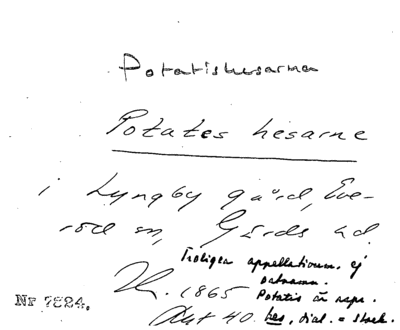 Potatishesarna
Potates hesarne
i Lyngby gård, Eve-
röd sn, Gärds hd.
Troligen appellativum. ej
ortnamn.
1865 Potatis är uppr.
Nr 7824. Akt 40. hes, dial. = stack.